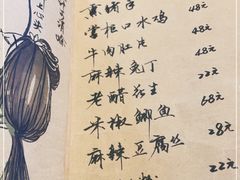 熏猪手 48元
掌柜口水鸡 48元
牛肉肚片 48元
麻辣兔丁
老醋花生 22元
米椒鲫鱼 68元
麻辣豆腐丝 28元
22元